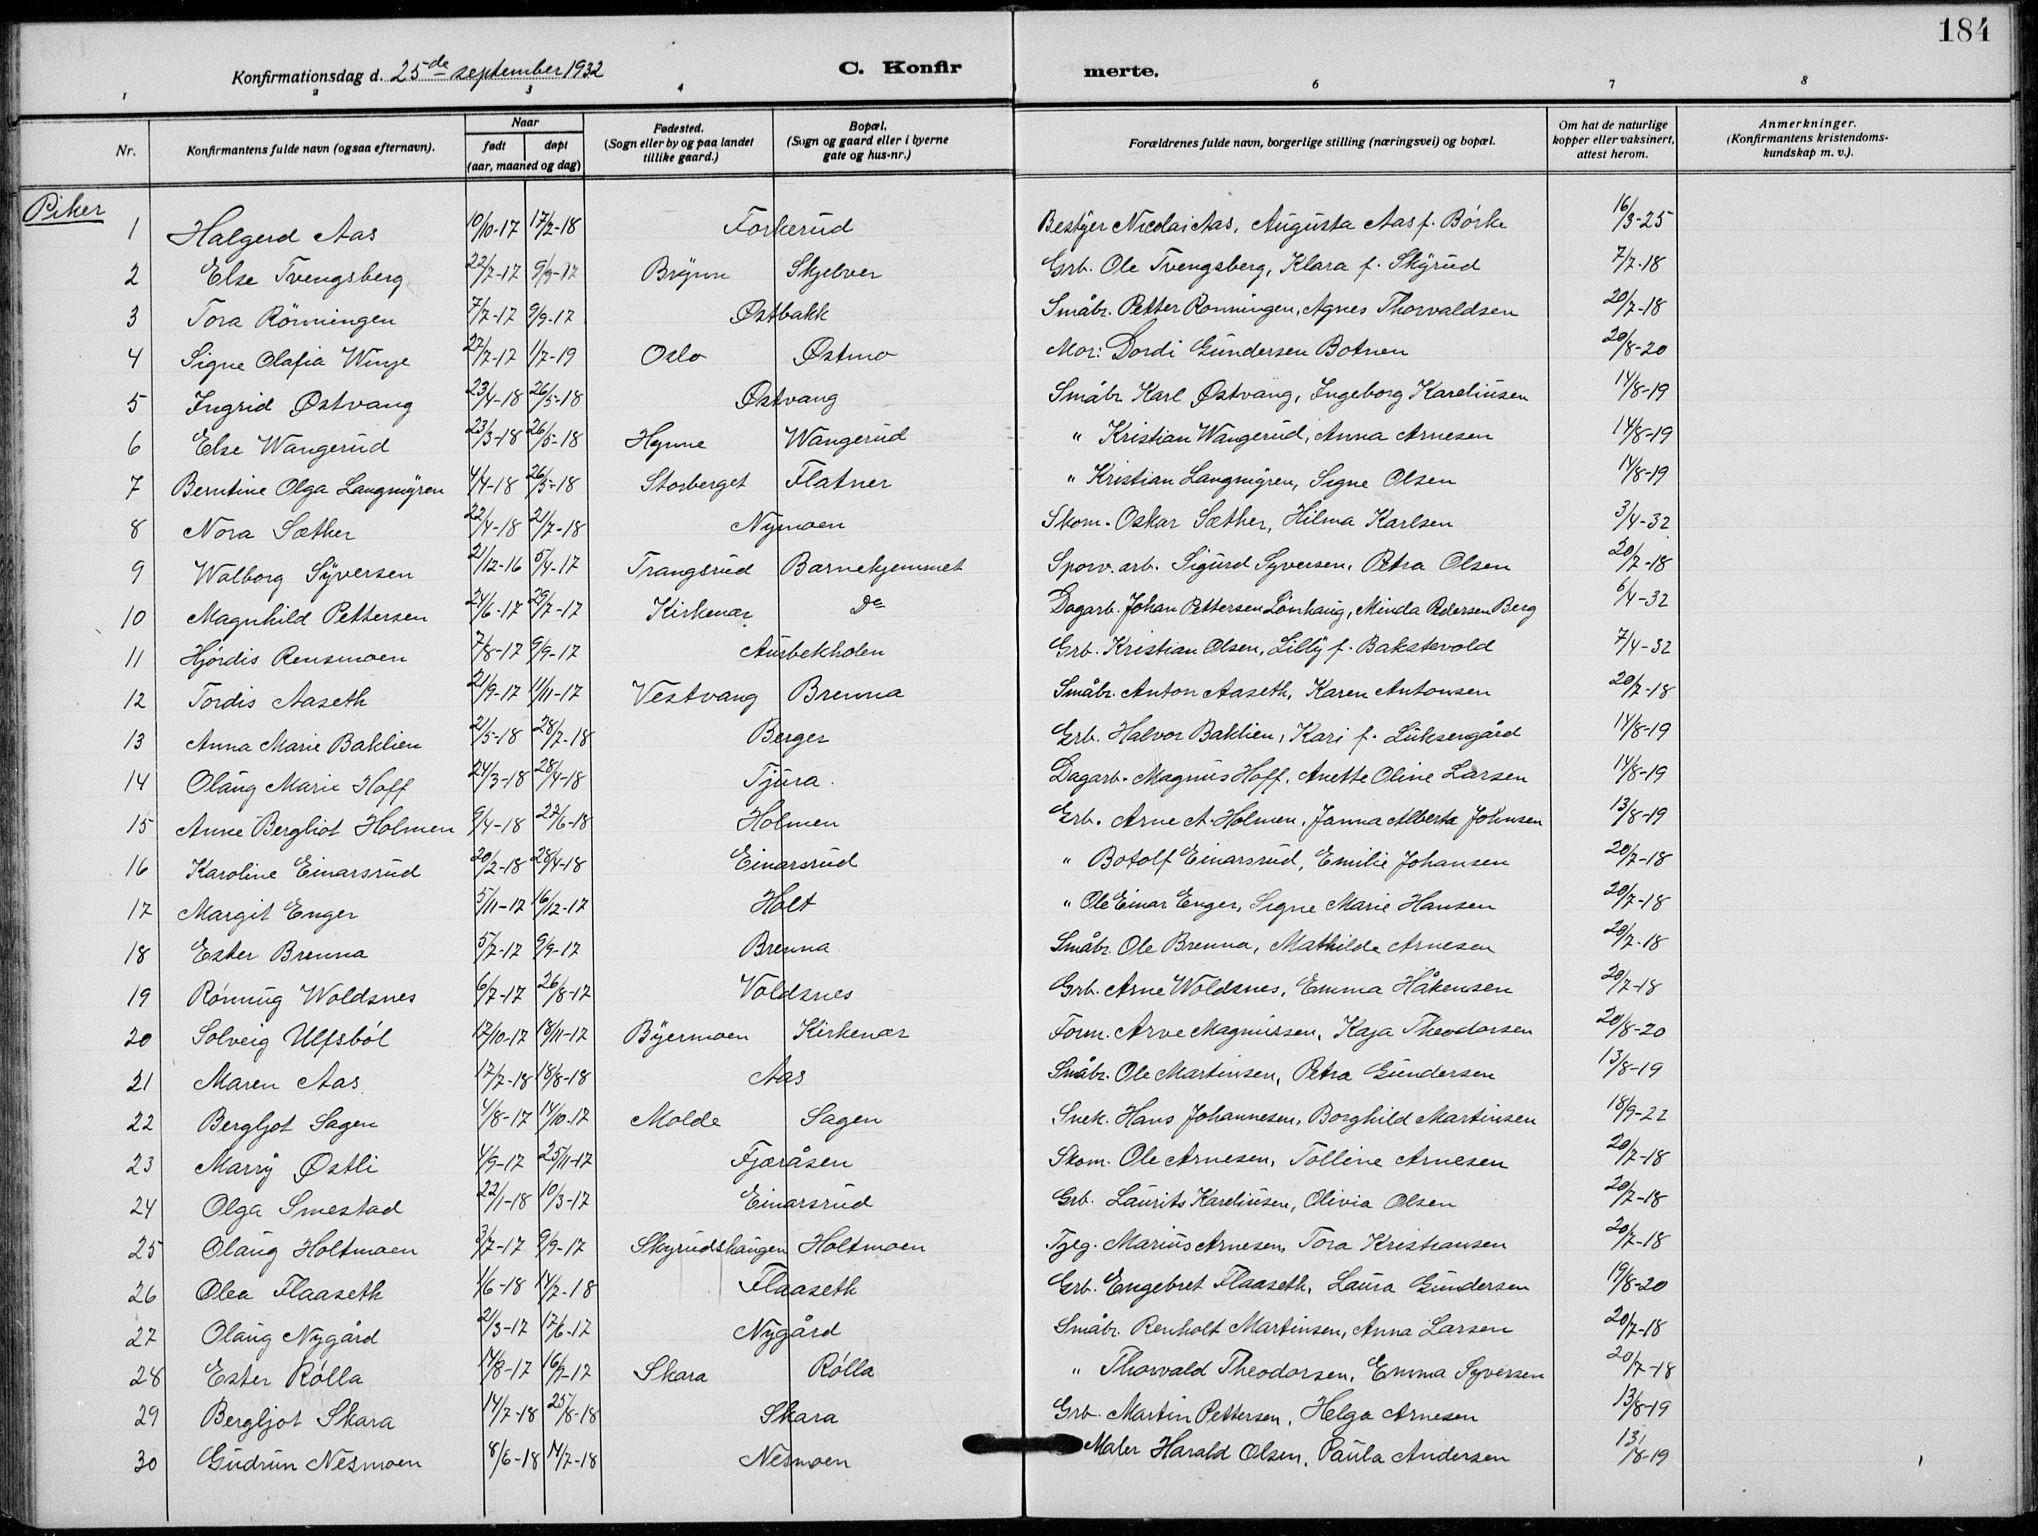 184
Konfirmationsdag d. 25de september 1932 C. Konfirmerte.
1 2 3 4 6 7 8
Nr. Konfirmantens fulde navn (ogsaa efternavn). Naar født døpt (aar, maaned og dag) Fødested. (Sogn eller by og paa landet tillike gaard.) Bopæl. (Sogn og gaard eller i byerne gate og hus-nr.) Forældrenes fulde navn, borgerlige stilling (næringsvei) og bopæl. Om hat de naturlige kopper eller vaksinert, attest herom. Anmerkninger. (Konfirmantens kristendomskundskap m. v.).
Piker
1 Halgerd Aas 10/10-17 17/2-18 Forkerud Bestyer Nicolai Aas, Augusta Aas f. Børke 16/3-25
2 Else Tvengsberg 22/7-17 9/9-17 Brynn Skjelver Grb. Ole Tvengsberg, Klara f. Skyrud 7/7-18
3 Tora Rönningen 7/7-17 9/9-17 Østbakk Småbr. Petter Ronningen, Agnes Thorvaldsen 20/7-18
4 Signe Olafia Winje 22/7-17 1/7-19 Oslo Østmo Mor: Dordi Gundersen Botnen 20/8-20
5 Ingrid Østvang 23/4-18 26/5-18 Østvang Småbr Karl Østvang, Ingeborg Kareliusen 14/8-19
6 Else Wangerud 23/3-18 26/5-18 Hynne Wangerud " Kristian Wangerud, Anna Arnesen 14/8-19
7 Berntine Olga Langmyren 4/4-18 26/5-18 Storberget Flatner " Kristian Langmyren, Signe Olsen 14/8-19
8 Nora Sæther 22/4-18 21/7-18 Nymoen Skom. Oskar Sæther, Hilma Karlsen 3/4-32
9 Walborg Syversen 21/12-16 5/4-17 Trangsrud Barnehjemmet Sporv. arb. Sigurd Syversen, Petra Olsen 20/7-18
10 Magnhild Pettersen 24/6-17 29/7-17 Kirkenær Do Dagarb. Johan Pettersen Lönhaug, Minda Pedersen Berg 6/4-32
11 Hjórdis Rensmoen 7/8-17 9/9-17 Aurbekholen Grb. Kristian Olsen, Lilly f. Bakstevold 7/4-32
12 Tordis Aaseth 21/9-17 11/11-17 Vestvang Brenna Småbr. Anton Aaseth, Karen Antonsen 20/7-18
13 Anna Marie Baklien 21/5-18 28/7-18 Berger Grb. Halvor Baklien, Kari f. Luksengård 14/8-19
14 Olaug Marie Hoff 24/3-18 28/4-18 Tjura. Dagarb. Magnus Hoff, Anette Oline Larsen 14/8-19
15 Anne Bergliot Holmen 9/4-18 22/6-18 Holmen Grb. Arne A. Holmen, Janna Alberta Johnsen 13/8-19
16 Karoline Einarsrud 20/2-18 28/4-18 Einarsrud " Botolf Einarsrud, Emilie Johansen 20/7-18
17 Margit Enger 5/11-17 16/12-17 Holt " Ole Einar Enger, Signe Marie Hansen 20/7-18
18 Ester Brenna 5/7-17 9/9-17 Brenna Småbr. Ole Brenna, Mathilde Arnesen 20/7-18
19 Rónnug Woldsnes 6/7-17 26/8-17 Voldsnes Grb. Arne Woldsnes, Emma Håkensen 20/7-18
20 Solveig Ulfsból 17/10-17 18/11-17 Byermoen Kirkenær Form. Arve Magnussen, Kaja Theodorsen 20/8-20
21 Maren Aas 17/7-18 18/8-18 Aas Småbr. Ole Martinsen, Petra Gundersen 13/8-19
22 Bergljot Sagen 4/8-17 14/10-17 Molde Sagen Snek. Hans Johannesen, Borghild Martinsen 18/9-22
23 Marry Østli 4/9-17 25/11-17 Fjæråsen Skom. Ole Arnesen, Tolline Arnesen 20/7-18
24 Olga Smestad 22/1-18 10/3-17 Einarsrud Grb. Laurits Kareliusen, Olivia Olsen 20/7-18
25 Olaug Holtmoen 3/7-17 9/9-17 Skyrudshaugen Holtmoen Tjeg. Marius Arnesen, Tora Kristiansen 20/7-18
26 Olea Flaaseth 1/6-18 14/7-18 Flaaseth Grb. Engebret Flaaseth, Laura Gundersen 19/8-20
27 Olaug Nygård 21/3-17 17/6-17 Nygård Småbr. Renholt Martinsen, Anna Larsen 20/7-18
28 Ester Rólla 14/8-17 16/9-17 Skara Rólla " Thorvald Theodorsen, Emma Syversen 20/7-18
29 Bergljot Skara 14/7-18 25/8-18 Skara Grb. Martin Pettersen, Helga Arnesen 13/8-19
30 Gudrun Nesmoen 8/6-18 14/7-18 Nesmoen Maler Harald Olsen, Paula Andersen 13/8-19